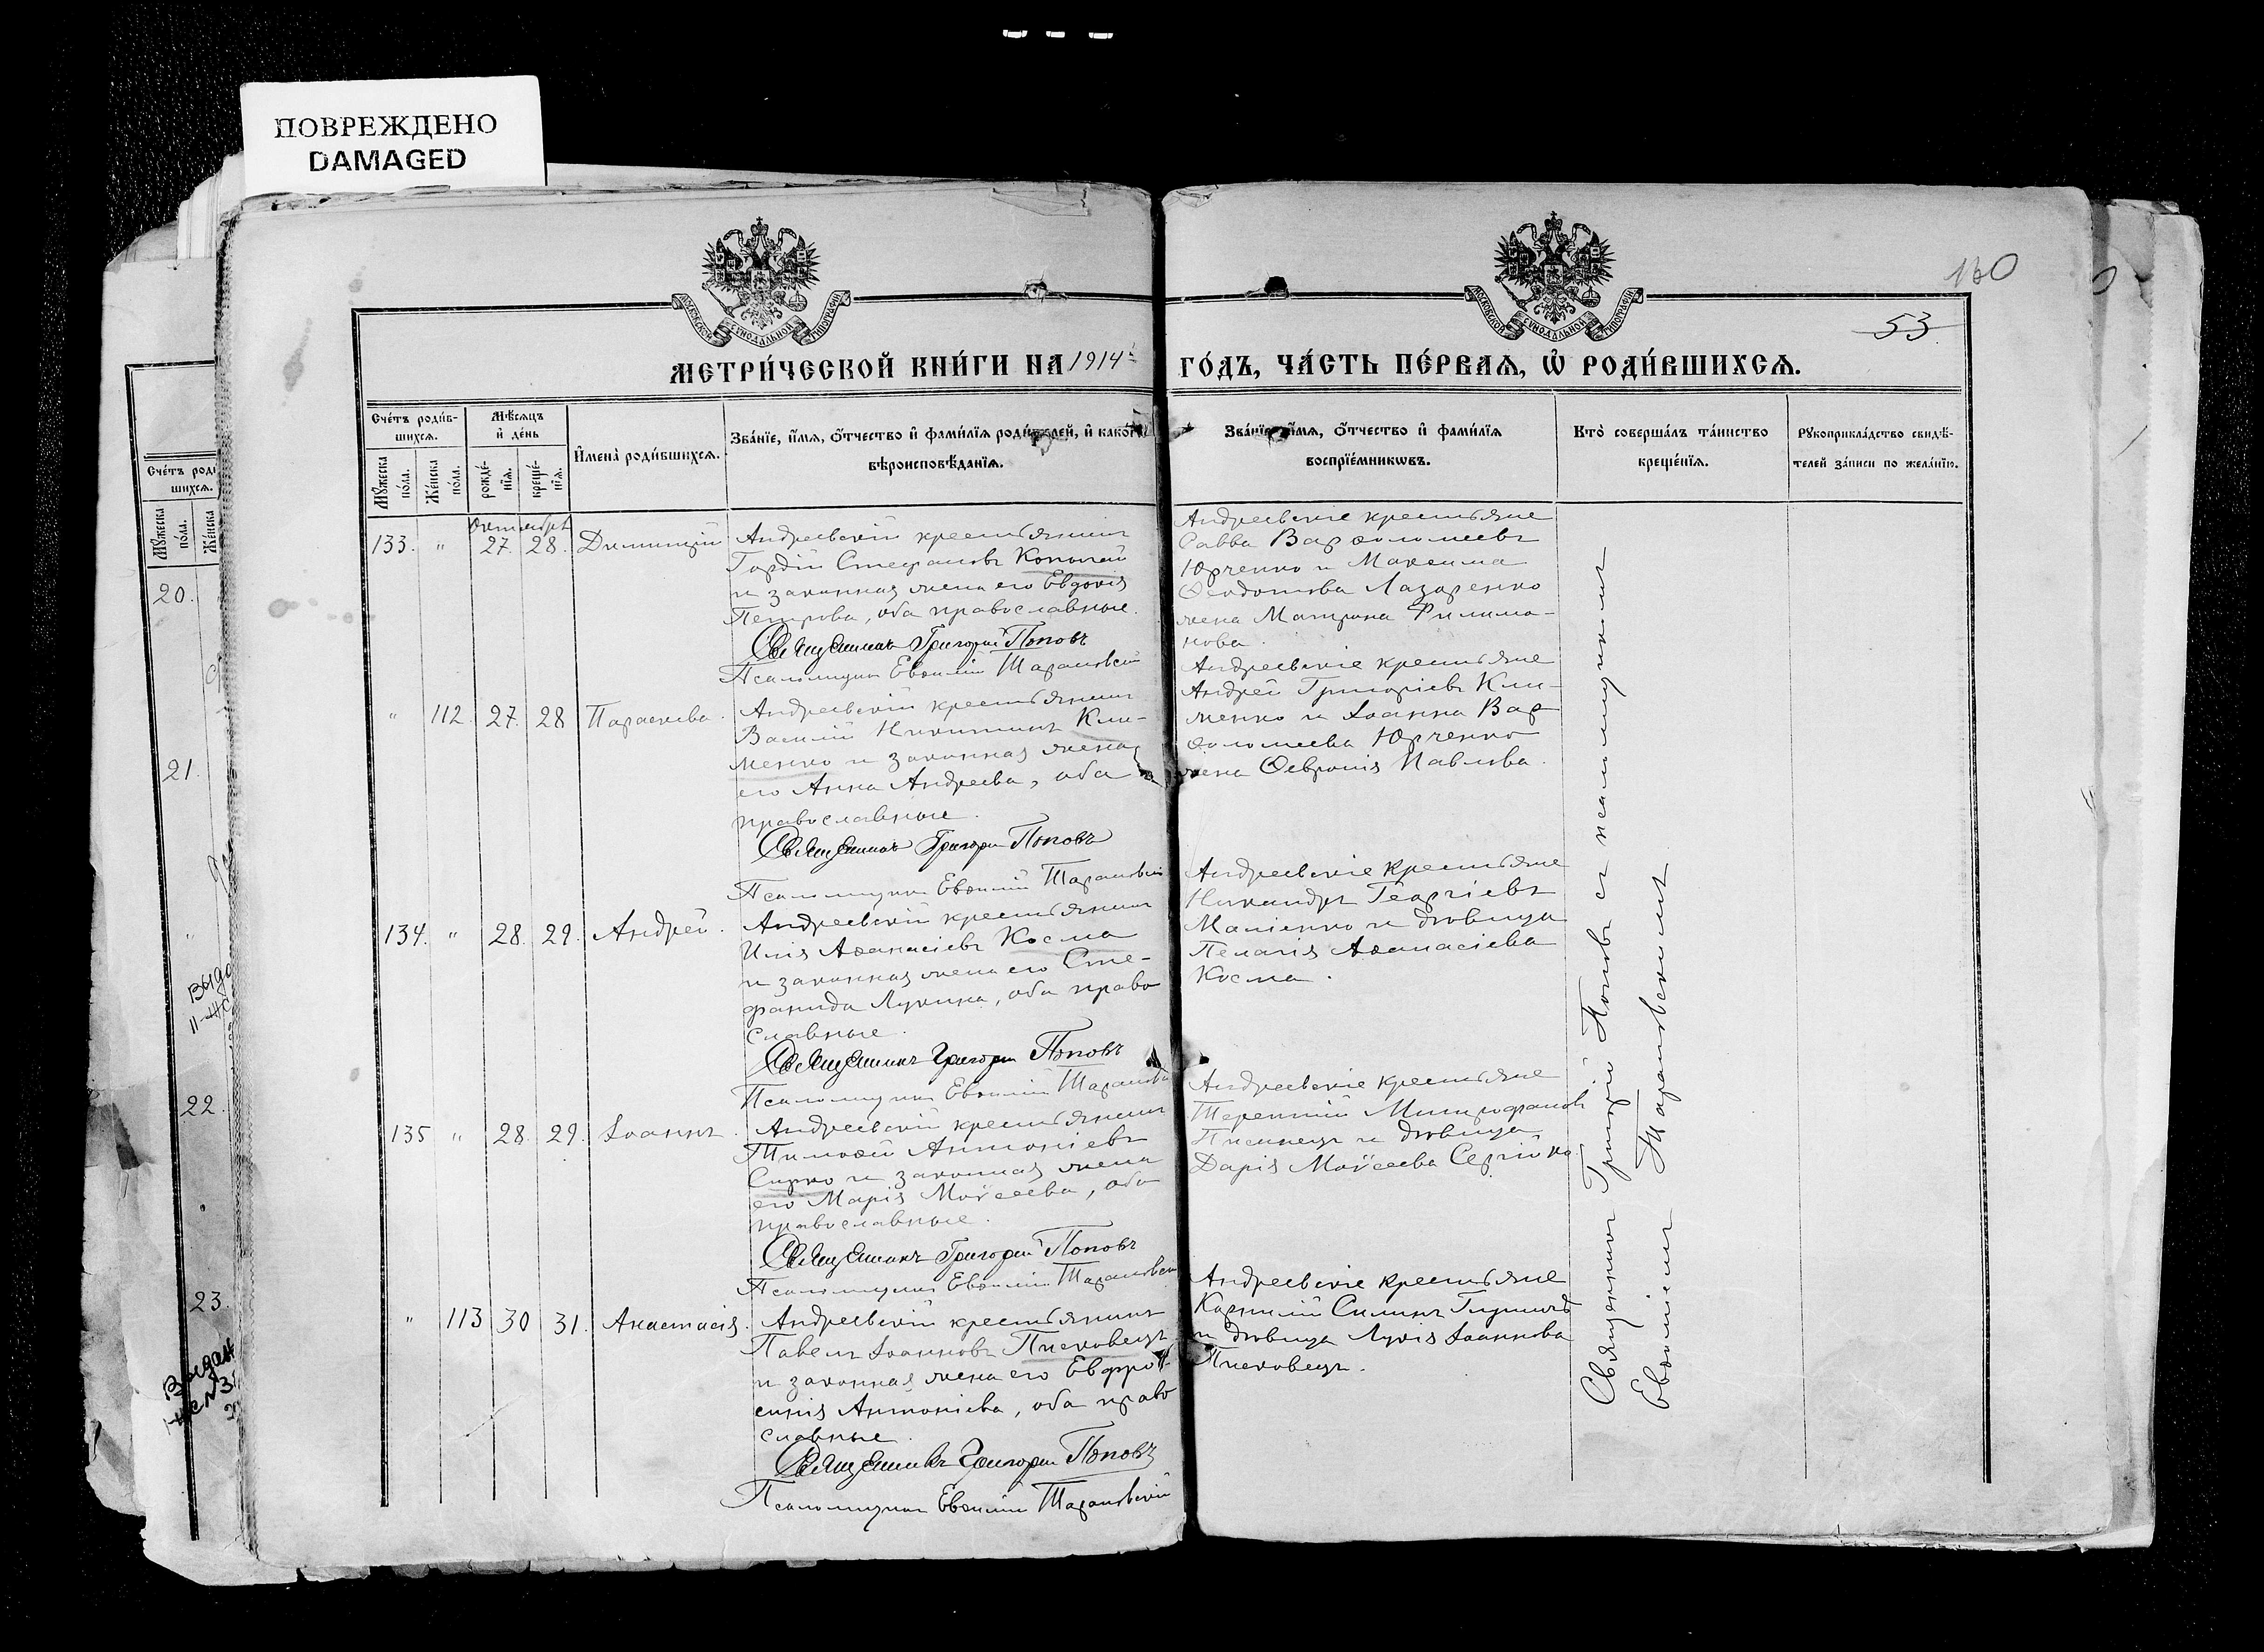 ПОВРЕЖДЕНО
DAMAGED
130
53
МОСКОВСКОЙ СѴНОДАЛЬНОЙ ТИПОГРАФІИ
МОСКОВСКОЙ СѴНОДАЛЬНОЙ ТИПОГРАФІИ
МЕТРИ́ЧЕСКОЙ КНИ́ГИ НА 1914 ГО́ДЪ, ЧА́СТЬ ПЕ́РВАѦ, Ѡ҆ РОДИ́ВШИХСѦ.
Сче́тъ роди́в-
шихсѧ.
Мꙋ́жеска
по́ла.
Же́нска
по́ла.
Мѣ́сѧцъ
и҆ де́нь
рожде́-
нїѧ.
креще́-
нїѧ.
И҆мена̀ роди́вшихсѧ.
Зва́нїе, и҆́мѧ, ѻ҆́тчество и҆ фами́лїѧ роди́телей, и҆ како́гѡ
вѣроисповѣ́данїѧ.
Зва́нїе, и҆́мѧ, ѻ҆́тчество и҆ фами́лїѧ
воспрїе́мникѡвъ.
Кто̀ соверша́лъ та́инство
креще́нїѧ.
Рꙋкоприкла́дство свидѣ́-
телей за́писи по жела́нїю.
Октябрь
133. " 27. 28. Димитрій
Андреевскій крестьянинъ
Гордій Стефановъ Копытай
и законная жена его Евдокія
Петрова, оба православные.
Священникъ Григорій Поповъ
Псаломщикъ Евѳимій Тарановскій
Андреевскіе крестьяне
Савва Варѳоломеевъ
Юрченко и Максима
Ѳеодотова Лазаренко
жена Матрона Филимо-
нова.
" 112. 27. 28 Параскева.
Андреевскій крестьянинъ
Василій Никитинъ Кли-
менко и законная жена
его Анна Андреева, оба
православные.
Священникъ Григорій Поповъ
Псаломщикъ Евѳимій Тарановскій
Андреевскіе крестьяне
Андрей Григоріевъ Кли-
менко и Іоанна Вар
ѳоломеева Юрченко
жена Ѳевронія Павлова.
134. " 28. 29. Андрей.
Андреевскій крестьянинъ
Илія Аѳанасіевъ Косма
и законная жена его Сте-
фанида Лукина, оба право
славные.
Священникъ Григорій Поповъ
Псаломщикъ Евѳимій Тарановскій
Андреевскіе крестьяне
Никандръ Георгіевъ
Маліенко и дѣвица
Пелагія Аѳанасіева
Косма.
135 " 28. 29. Іоаннъ.
Андреевскій крестьянинъ
Тимоѳей Антоніевъ
Сирко и законная жена
его Марія Моѵсеева, оба
православные.
Священникъ Григорій Поповъ
Псаломщикъ Евѳимій Тарановскій
Андреевскіе крестьяне
Терентій Митрофановъ
и дѣвица
Дарія Моѵсеева Сергійко.
" 113 30 31. Анастасія.
Андреевскій крестьянинъ
Павелъ Іоанновъ Писковецъ
и законная жена его Евфро-
синія Антоніева, оба право
славные.
Священникъ Григорій Поповъ
Псаломщикъ Евѳимій Тарановскій
Андреевскіе крестьяне
Корнилій Силинъ
и дѣвица Лукія Іоаннова
Писковецъ.
Священникъ Григорій Поповъ съ псаломщикомъ
Евѳиміемъ Тарановскимъ
Сче́тъ роди
шихсѧ.
Мꙋ́жеска
по́ла.
Же́нска
20.
21.
22.
23.